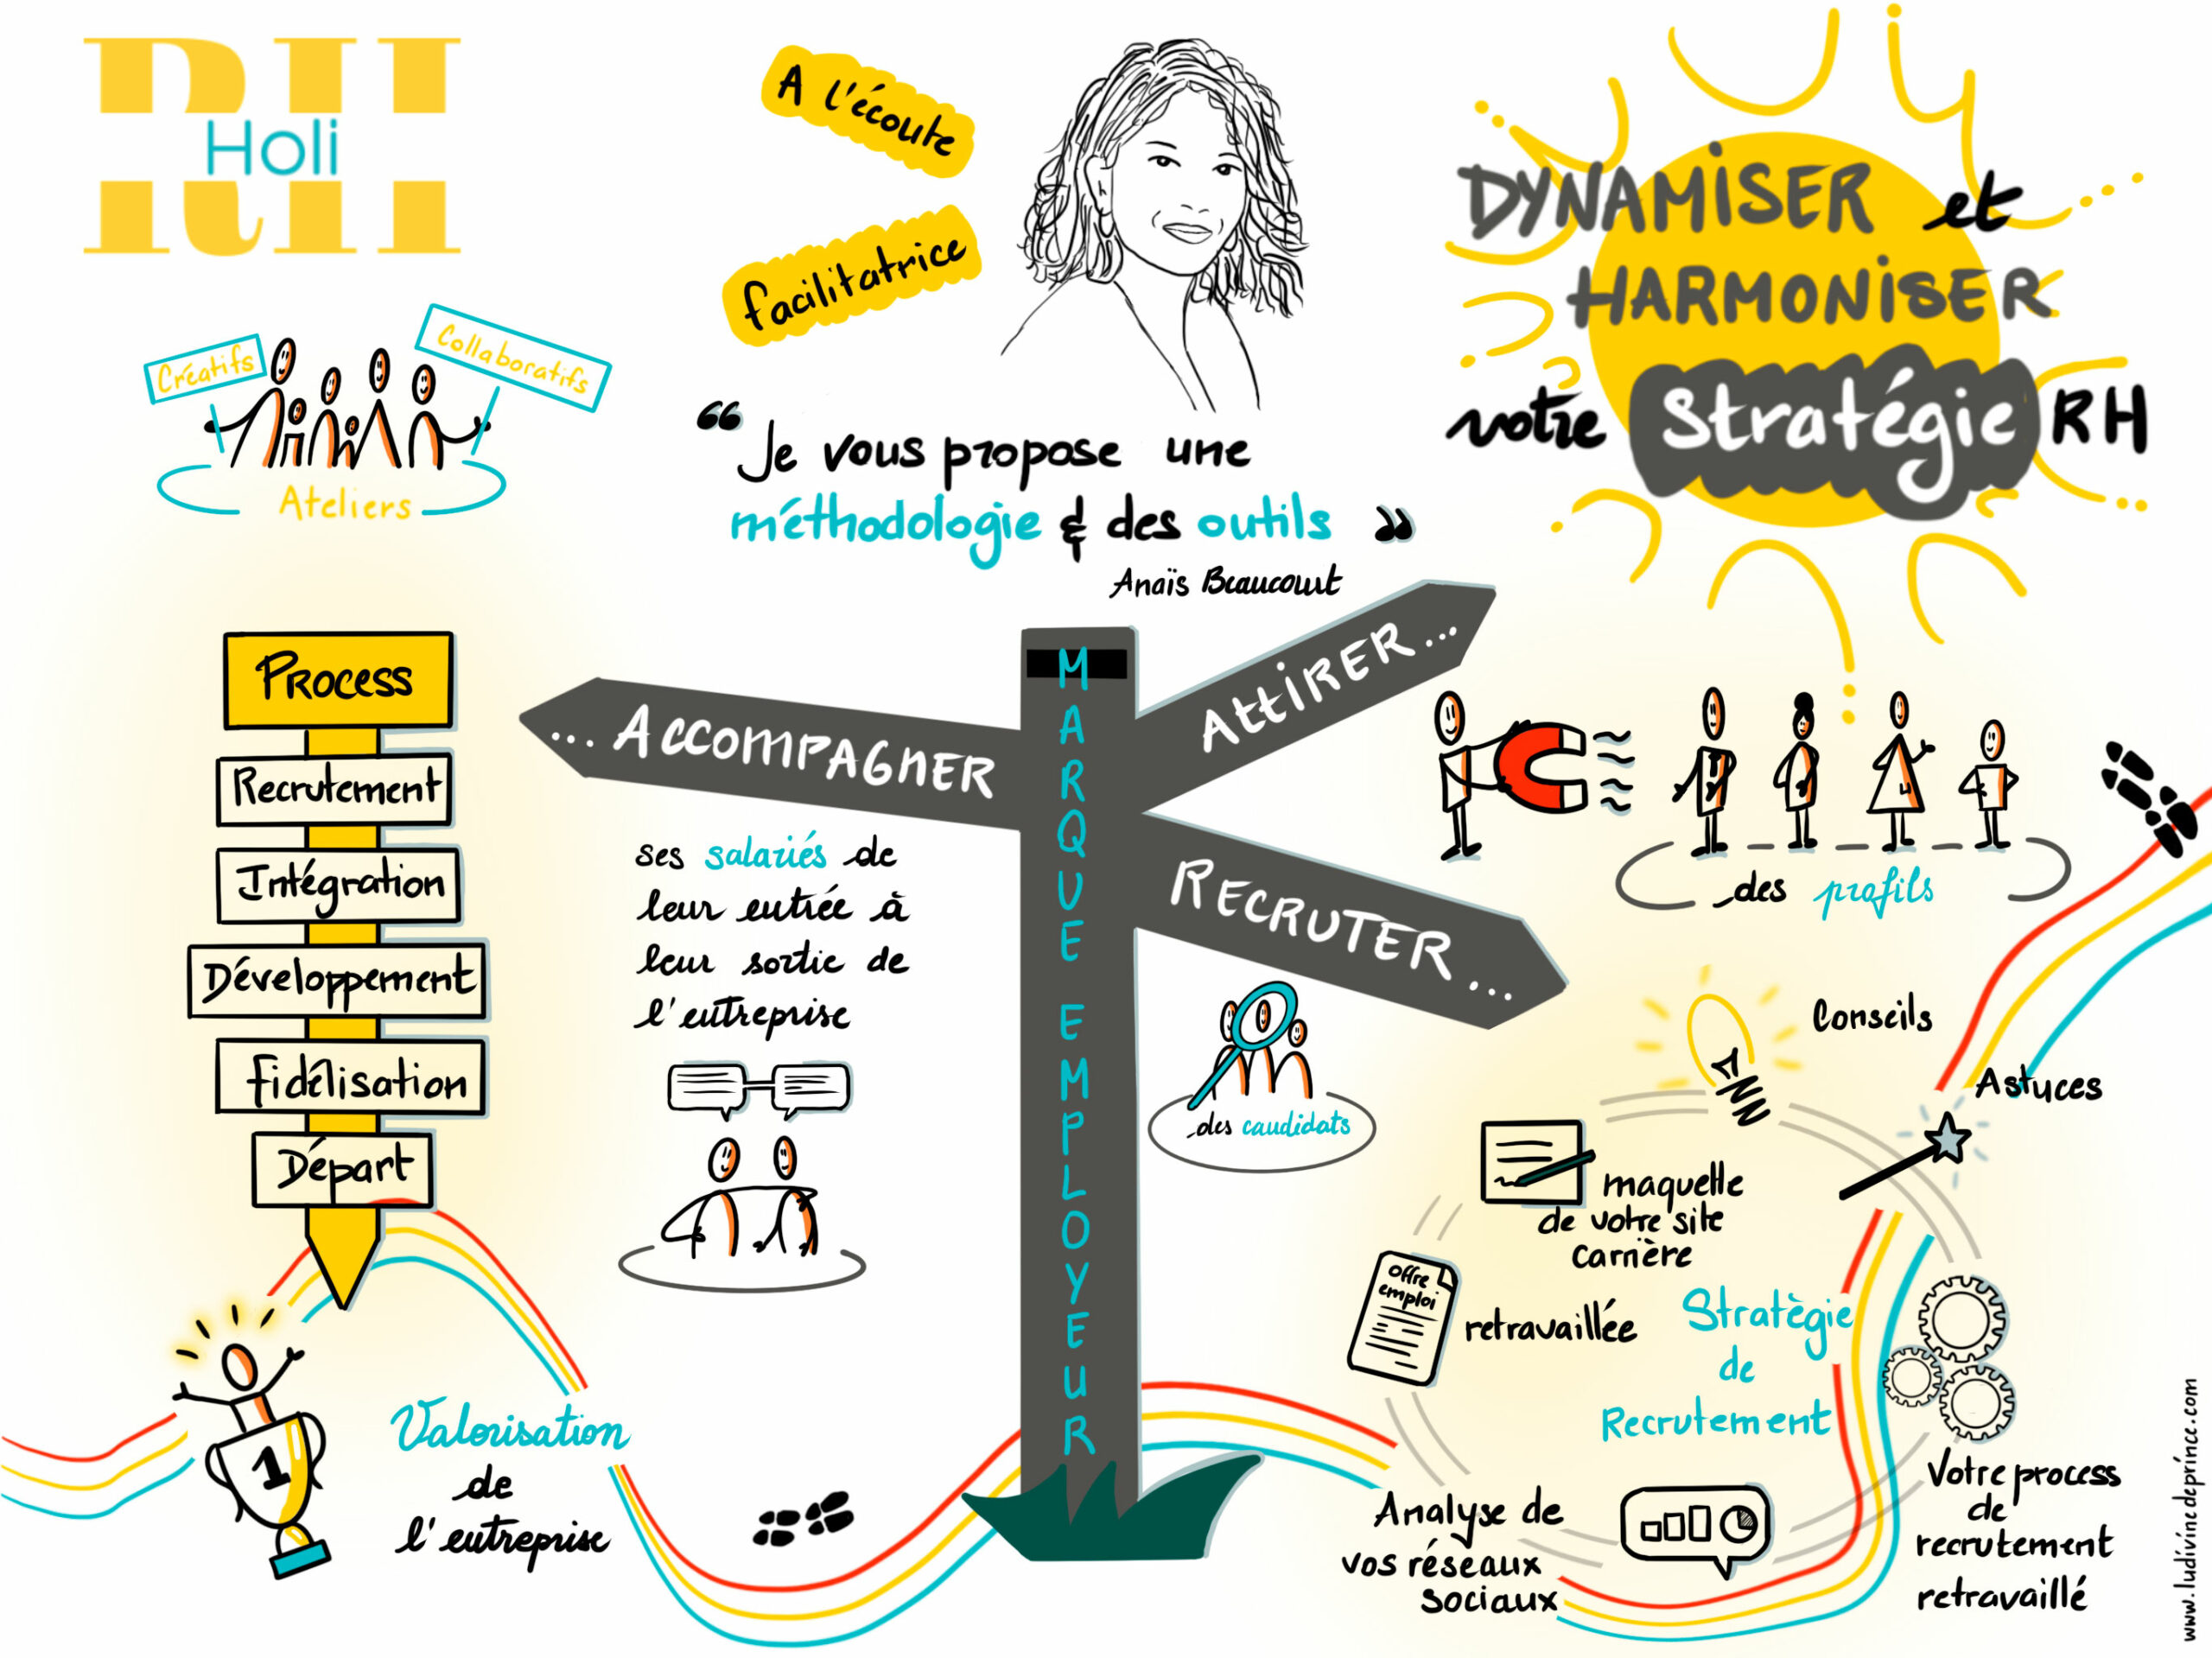 RH
Holi
Créatifs
Collaboratifs
Ateliers
A l'écoute
facilitatrice
“ Je vous propose une
méthodologie & des outils ”
Anaïs Beaucourt
DYNAMISER et
HARMONISER
votre Stratégie RH
PROCESS
Recrutement
Intégration
Développement
fidélisation
Départ
... ACCOMPAGNER
ses salariés de
leur entrée à
leur sortie de
l'entreprise
MARQUE EMPLOYEUR
ATTIRER...
des profils
RECRUTER...
des candidats
Conseils
Astuces
maquette
de votre site
carrière
offre
emploi
retravaillée
Stratègie
de
Recrutement
Analyse de
vos réseaux
sociaux
Votre process
de
recrutement
retravaillé
1
Valorisation
de
l'entreprise
www.ludivinedeprince.com